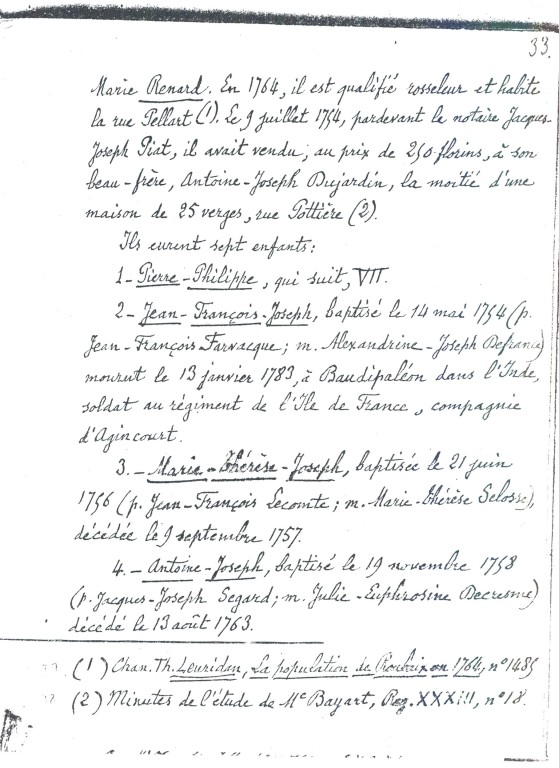 33.
Marie Renard. En 1764, il est qualifié rosseleur et habite
la rue Pellart (1). Le 9 juillet 1754, pardevant le notaire Jacques-
Joseph Piat, il avait vendu, au prix de 250 florins, à son
beau-frère, Antoine-Joseph Dujardin, la moitié d'une
maison de 25 verges, rue Pottière (2).
Ils eurent sept enfants:
1- Pierre-Philippe, qui suit, VII.
2- Jean-François-Joseph, baptisé le 14 mai 1754 (p.
Jean-François Farvacque; m. Alexandrine-Joseph Defrance)
mourut le 13 janvier 1783, à Baudipaléon dans l'Inde,
soldat au régiment de l'Ile de France, compagnie
d'Agincourt.
3.- Marie-Thérèse-Joseph, baptisée le 21 juin
1756 (p. Jean-François Lecomte; m. Marie-Thérèse Selosse),
décédée le 9 septembre 1757.
4.- Antoine-Joseph, baptisé le 19 novembre 1758
(p. Jacques-Joseph Segard; m. Julie-Euphrosine Decresme)
décédé le 13 août 1763.
(1) Chan. Th. Leuridan, La population de Roubaix en 1764, n° 1485
(2) Minutes de l'étude de Me Bayart, Reg. XXXiii, n° 18.